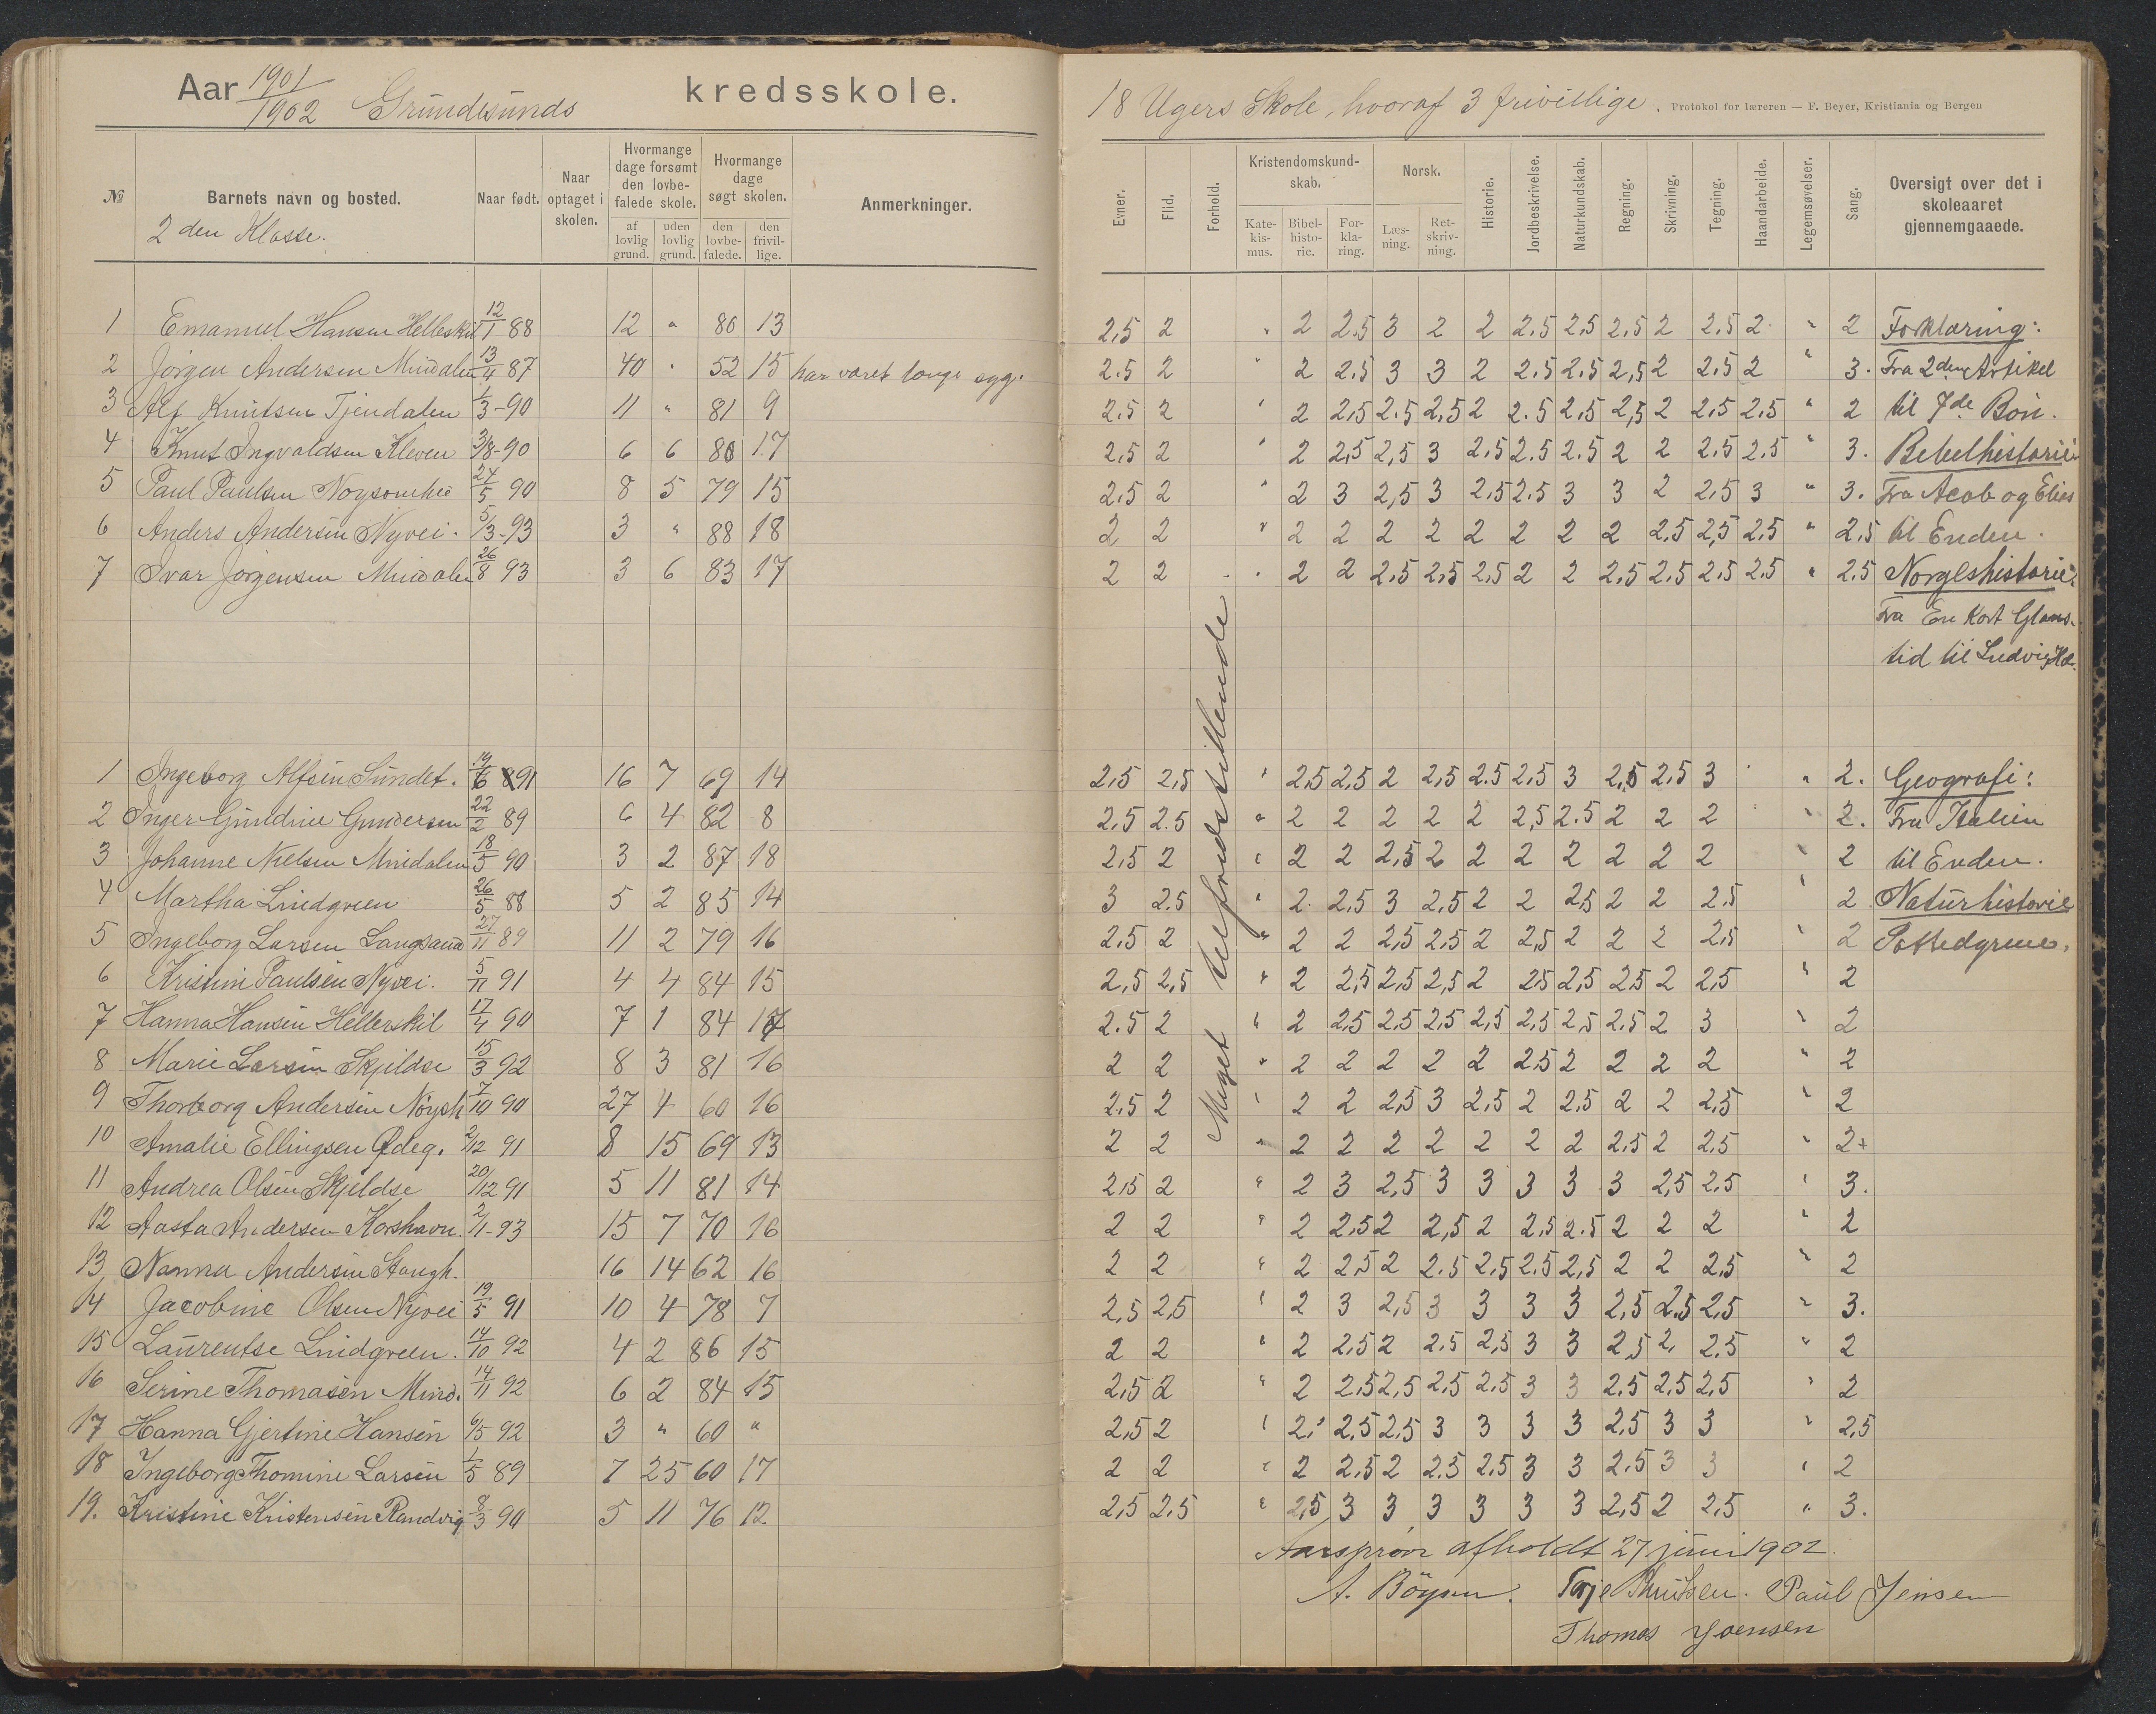 Aar 1901/1902 Grundesunds kredsskole.
18 Ugers Skole, hvoraf 3 frivillige. Protokol for læreren — F. Beyer, Kristiania og Bergen
№ Barnets navn og bosted. Naar født. Naar optaget i skolen. Hvormange dage forsømt den lovbefalede skole. af lovlig grund. uden lovlig grund. Hvormange dage søgt skolen. den lovbefalede. den frivillige. Anmerkninger.
Evner. Flid. Forhold. Kristendomskundskab. Katekismus. Bibelhistorie. Forklaring. Norsk. Læsning. Retskrivning. Historie. Jordbeskrivelse. Naturkundskab. Regning. Skrivning. Tegning. Haandarbeide. Legemsøvelser. Sang. Oversigt over det i skoleaaret gjennemgaaede.
2den Klasse.
1 Emanuel Hansen Helleskil 12/1 88 12 " 80 13
2 Jörgen Andersen Mindalen 13/4 87 40 " 52 15 har været længe syg.
3 Alf Knutsen Tjendalen 1/3-90 11 " 81 9
4 Knut Ingvaldsen Kleven 3/8-90 6 6 80 17
5 Paul Paulsen 24/5 90 8 5 79 15
6 Anders Andersen Nyvei. 5/3-93 3 " 88 18
7 Ivar Jörgensen Mindalen 26/8 93 3 6 83 17
1 Ingeborg Alfsen Sundet. 19/6 91 16 7 69 14
2 Inger Gundersen 22/2 89 6 4 82 8
3 Johanne Nielsen Mindalen 18/5 90 3 2 87 18
4 Martha Lindgreen 26/5 88 5 2 85 14
5 Ingeborg Larsen Langsand 27/11 89 11 2 79 16
6 Kristine Paulsen Nyvei. 5/11 91 4 4 84 15
7 Hanna Hansen Hellerskil 17/4 90 7 1 84 17
8 Marie Larsen Skjeldsø 15/3 92 8 3 81 16
9 Thorborg Andersen Nöysh 7/10 90 27 4 60 16
10 Amalie Ellingsen Ødeg. 2/12 91 8 15 69 13
11 Andrea Olsen Skjeldse 20/12 91 5 11 81 14
12 Aasta Andersen Korshavn. 2/1-93 15 7 70 16
13 Nanna Andersen Staugh. 16 14 62 16
14 Jacobine Olsen Nyvei 19/5 91 10 4 78 7
15 Laurentse Lindgreen. 14/10 92 4 2 86 15
16 Serine Thomasen Mind. 14/11 92 6 2 84 15
17 Hanna Gjertine Hansen 6/5 92 3 " 60 "
18 Ingeborg Thomine Larsen 1/5 89 7 25 60 17
19. Kristine Kristensen Randvig 8/3 90 5 11 76 12
2,5 2 " 2 2.5 3 2 2 2.5 2.5 2,5 2 2.5 2 " 2 Forklaring:
2.5 2 " 2 2.5 3 3 2 2.5 2.5 2,5 2 2.5 2 " 3. Fra 2den Artikel
2.5 2 " 2 2,5 2.5 2,5 2 2.5 2,5 2,5 2 2,5 2,5 " 2 til 7de Bön.
2,5 2 " 2 2,5 2,5 3 2,5 2.5 2.5 2 2 2.5 2.5 " 3. Bebelhistorie
2,5 2 " 2 3 2,5 3 2,5 2.5 3 3 2 2,5 3 " 3. Fra Acab og Elias
2 2 " 2 2 2 2 2 2 2 2 2,5 2,5 2,5 " 2,5 til Enden.
2 2 " 2 2 2,5 2,5 2,5 2 2 2,5 2,5 2,5 2,5 " 2.5 Norgeshistorie:
Fra En Kort Glans-
tid til Ludvig Hol.
Meget tilfredsstillende
2,5 2,5 " 2,5 2,5 2 2,5 2.5 2,5 3 2,5 2,5 3 " 2. Geografi:
2.5 2.5 " 2 2 2 2 2 2,5 2.5 2 2 2 " 2. Fra Italien
2,5 2 " 2 2 2,5 2 2 2 2 2 2 2 " 2 til Enden.
3 2.5 " 2. 2,5 3 2,5 2 2 2,5 2 2 2.5 " 2 Naturhistorie
2,5 2 " 2 2 2,5 2,5 2 2,5 2 2 2 2,5 " 2
2,5 2,5 " 2 2,5 2,5 2,5 2 2,5 2,5 2,5 2 2,5 " 2
2.5 2 " 2 2,5 2,5 2,5 2,5 2,5 2,5 2.5 2 3 " 2
2 2 " 2 2 2 2 2 2,5 2 2 2 2 " 2
2.5 2 " 2 2 2,5 3 2,5 2 2,5 2 2 2,5 " 2
2 2 " 2 2 2 2 2 2 2 2,5 2 2,5 " 2+
2,5 2 " 2 3 2,5 3 3 3 3 3 2,5 2,5 " 3.
2 2 " 2 2,5 2 2,5 2 2,5 2.5 2 2 2 " 2
2 2 " 2 2,5 2 2.5 2,5 2.5 2,5 2 2 2,5 " 2
2,5 2,5 " 2 3 2,5 3 3 3 3 2,5 2,5 2,5 " 3.
2 2 " 2 2,5 2 2,5 2,5 3 3 2,5 2, 2,5 " 2
2,5 2 " 2 2,5 2,5 2,5 2,5 3 3 2,5 2,5 2,5 " 2
2,5 2 " 2. 2,5 2,5 3 3 3 3 2,5 3 3 " 2,5
2 2 " 2 2,5 2 2,5 2,5 3 3 2.5 3 3 " 2
2,5 2,5 " 2,5 3 3 3 3 3 3 2,5 2 2,5 " 3.
Aarspröve afholdt 27 juni 1902.
A. Böysen. Terje Knutsen. Paul Jensen
Thomas Joensen